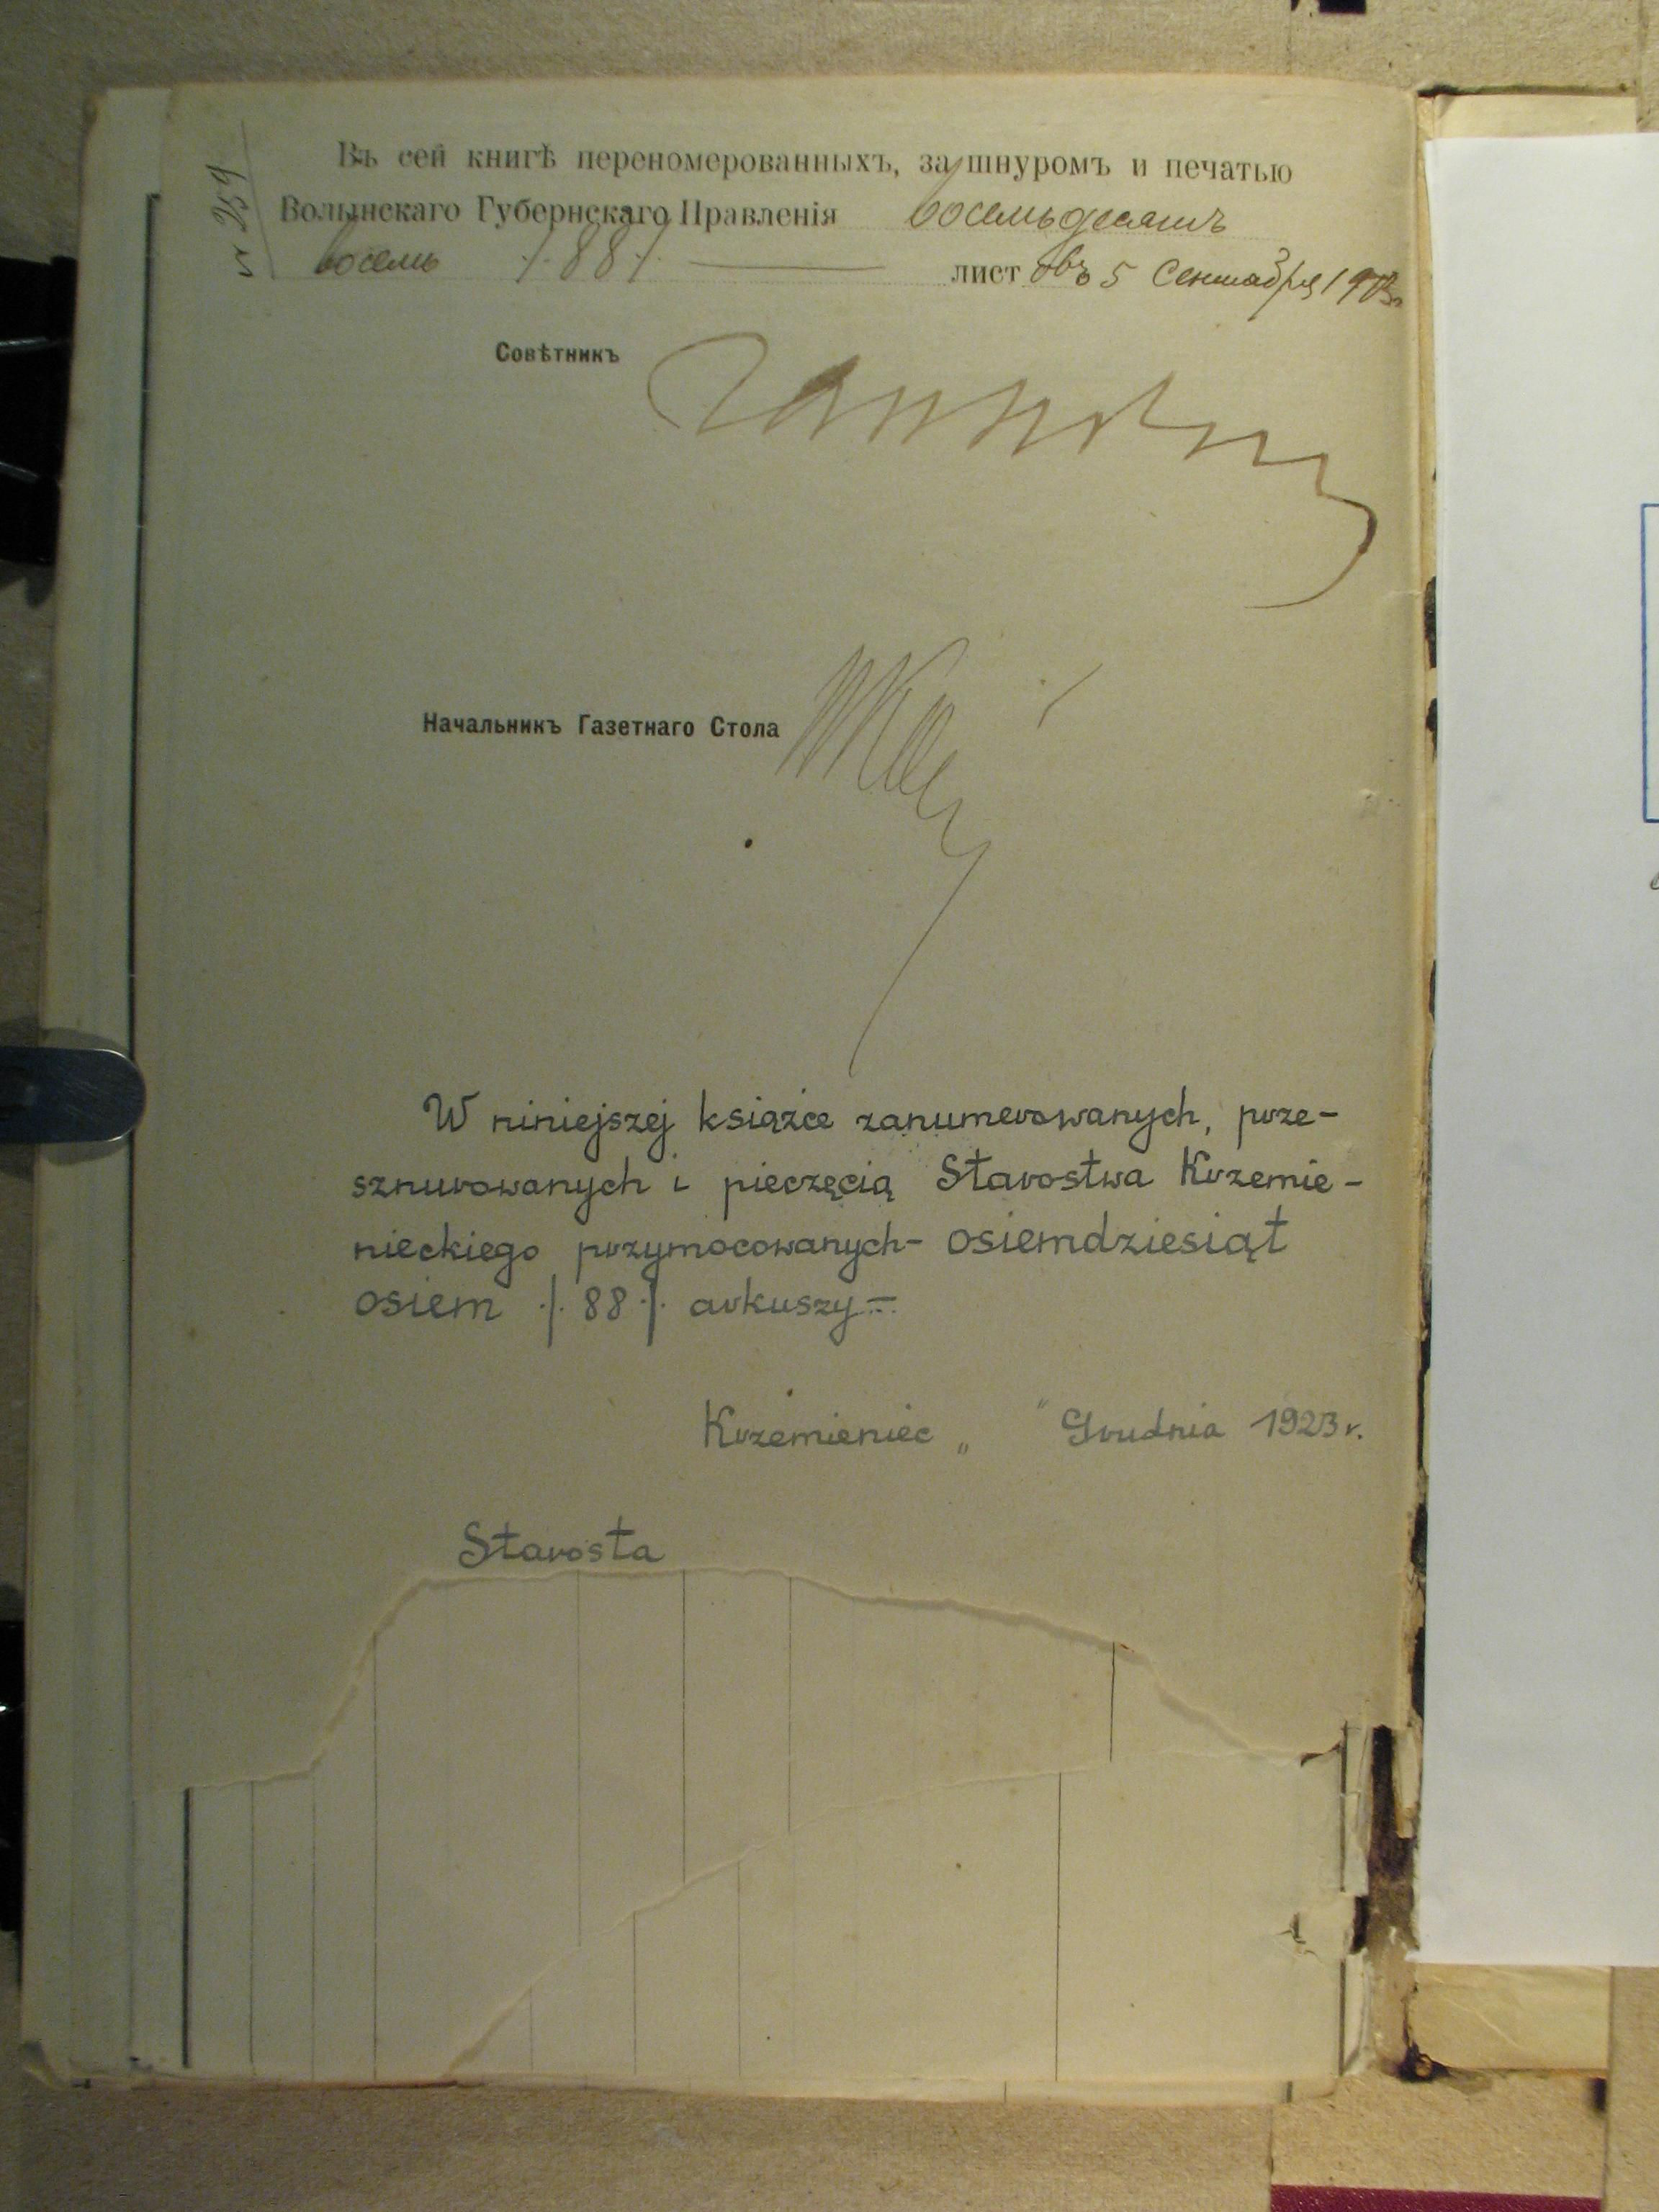 Въ сей книгѣ переномерованныхъ, за шнуромъ и печатью
Волынскаго Губернскаго Правленія восемьдесятъ
восемь /. 88 ./ — листовъ 5 Сентября
Совѣтникъ
Начальникъ Газетнаго Стола
W niniejszej książce zanumerowanych, prze-
sznurowanych i pieczęcią Starostwa Krzemie-
nieckiego przymocowanych - osiemdziesiąt
osiem ./. 88 ./. arkuszy -
Krzemieniec „ " Grudnia 1923 r.
Starosta